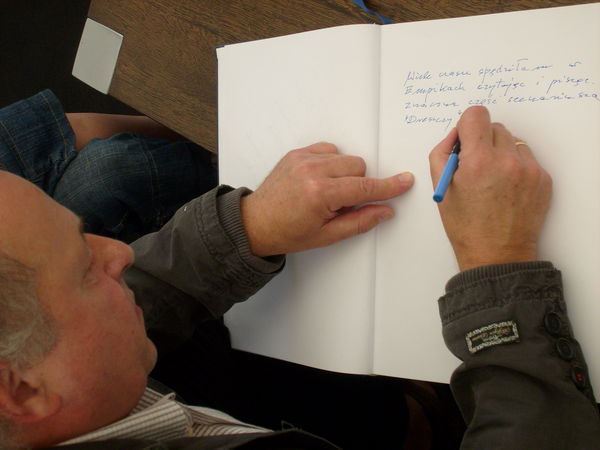 Wiele czasu spędziłam w
Empikach czytając i pisząc.
znaczną część scenariusza
"Dreszczy